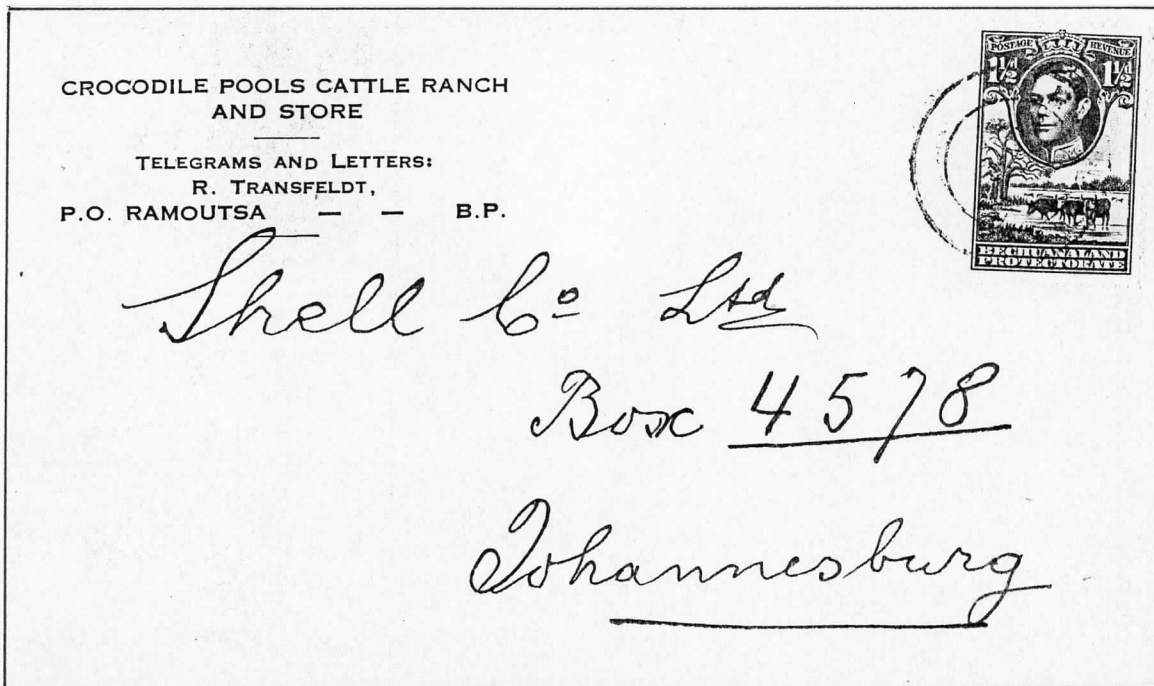 CROCODILE POOLS CATTLE RANCH
AND STORE
TELEGRAMS AND LETTERS:
R. TRANSFELDT,
P.O. RAMOUTSA — — B.P.
POSTAGE REVENUE
1½d 1½d
BECHUANALAND
PROTECTORATE
Shell Co Ltd
Box 4578
Johannesburg